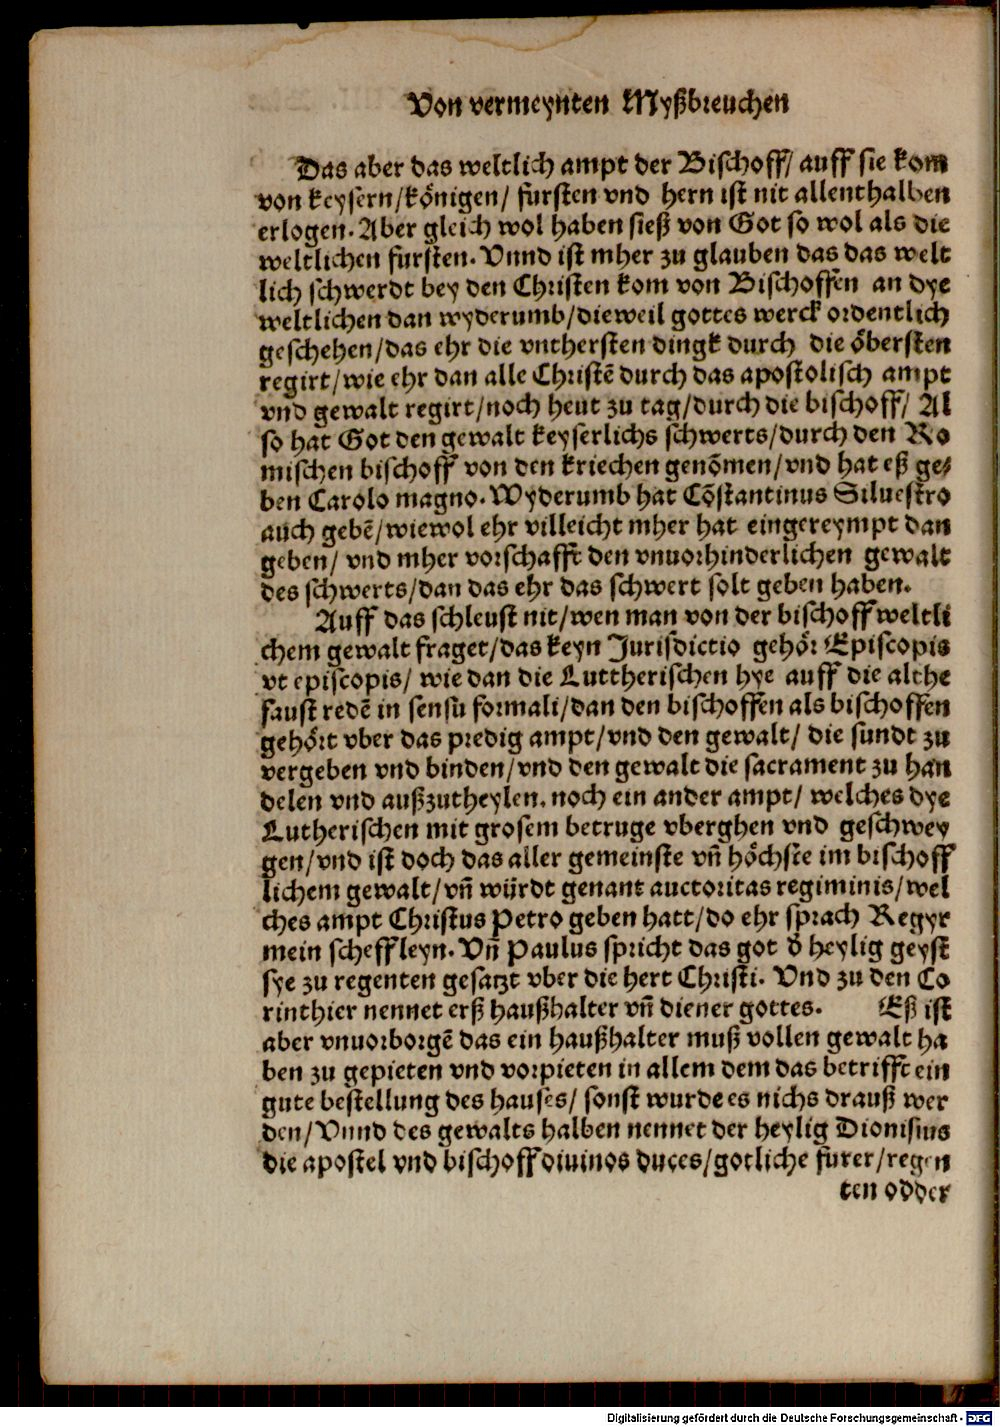 Von vermeynten Myßbreuchen
Das aber das weltlich ampt der Bischoff/ auff sie kom
von keysern/königen/ fursten vnd hern ist nit allenthalben
erlogen. Aber gleich wol haben sieß von Got so wol als die
weltlichen fursten. Vnnd ist mher zu glauben das das welt
lich schwerdt bey den Christen kom von Bischoffen an dye
weltlichen dan wyderumb/dieweil gottes werck ordentlich
geschehen/das ehr die vnthersten dingk durch die öbersten
regirt/wie ehr dan alle Christē durch das apostolisch ampt
vnd gewalt regirt/noch heut zu tag/durch die bischoff/ Al
so hat Got den gewalt keyserlichs schwerts/durch den Ro
mischen bischoff von den kriechen genōmen/vnd hat eß ge⸗
ben Carolo magno. Wyderumb hat Cōstantinus Siluestro
auch gebē/wiewol ehr villeicht mher hat eingereympt dan
geben/ vnd mher vorschafft den vnuorhinderlichen gewalt
des schwerts/dan das ehr das schwert solt geben haben.
Auff das schleust nit/wen man von der bischoff weltli
chem gewalt fraget/das keyn Jurisdictio gehör Episcopis
vt episcopis/ wie dan die Luttherischen hye auff die althe
faust redē in sensu formali/dan den bischoffen als bischoffen
gehört vber das predig ampt/vnd den gewalt/ die sundt zu
vergeben vnd binden/vnd den gewalt die sacrament zu han
delen vnd außzutheylen. noch ein ander ampt/ welches dye
Lutherischen mit grosem betruge vberghen vnd geschwey
gen/vnd ist doch das aller gemeinste vn̄ höchste im bischoff
lichem gewalt/vn̄ würdt genant auctoritas regiminis/wel
ches ampt Christus Petro geben hatt/do ehr sprach Regyr
mein scheffleyn. Vn̄ Paulus spricht das got d̄ heylig geyst
sye zu regenten gesatzt vber die hert Christi. Vnd zu den Co
rinthier nennet erß haußhalter vn̄ diener gottes. Eß ist
aber vnuorborgē das ein haußhalter muß vollen gewalt ha
ben zu gepieten vnd vorpieten in allem dem das betrifft ein
gute bestellung des hauses/ sonst wurde es nichs drauß wer
den/Vnnd des gewalts halben nennet der heylig Dionisius
die apostel vnd bischoff diuinos duces/gotliche furer/regen
ten odder
Digitalisierung gefördert durch die Deutsche Forschungsgemeinschaft - DFG